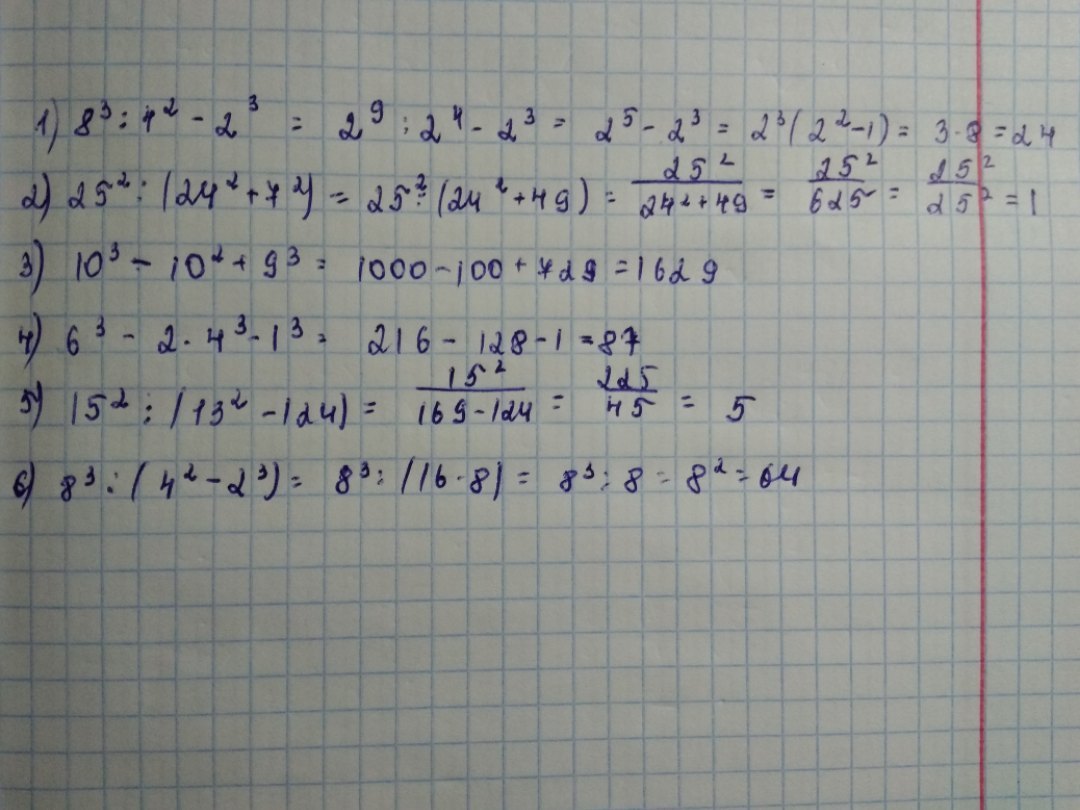 1) 8³ : 4² - 2³ = 2⁹ : 2⁴ - 2³ = 2⁵ - 2³ = 2³(2² - 1) = 3 · 8 = 24
2) 25² : (24² + 7²) = 25² : (24² + 49) = 25² / (24² + 49) = 25² / 625 = 25² / 25² = 1
3) 10³ - 10² + 9³ = 1000 - 100 + 729 = 1629
4) 6³ - 2 · 4³ - 1³ = 216 - 128 - 1 = 87
5) 15² : (13² - 124) = 15² / (169 - 124) = 225 / 45 = 5
6) 8³ : (4² - 2³) = 8³ : (16 - 8) = 8³ : 8 = 8² = 64